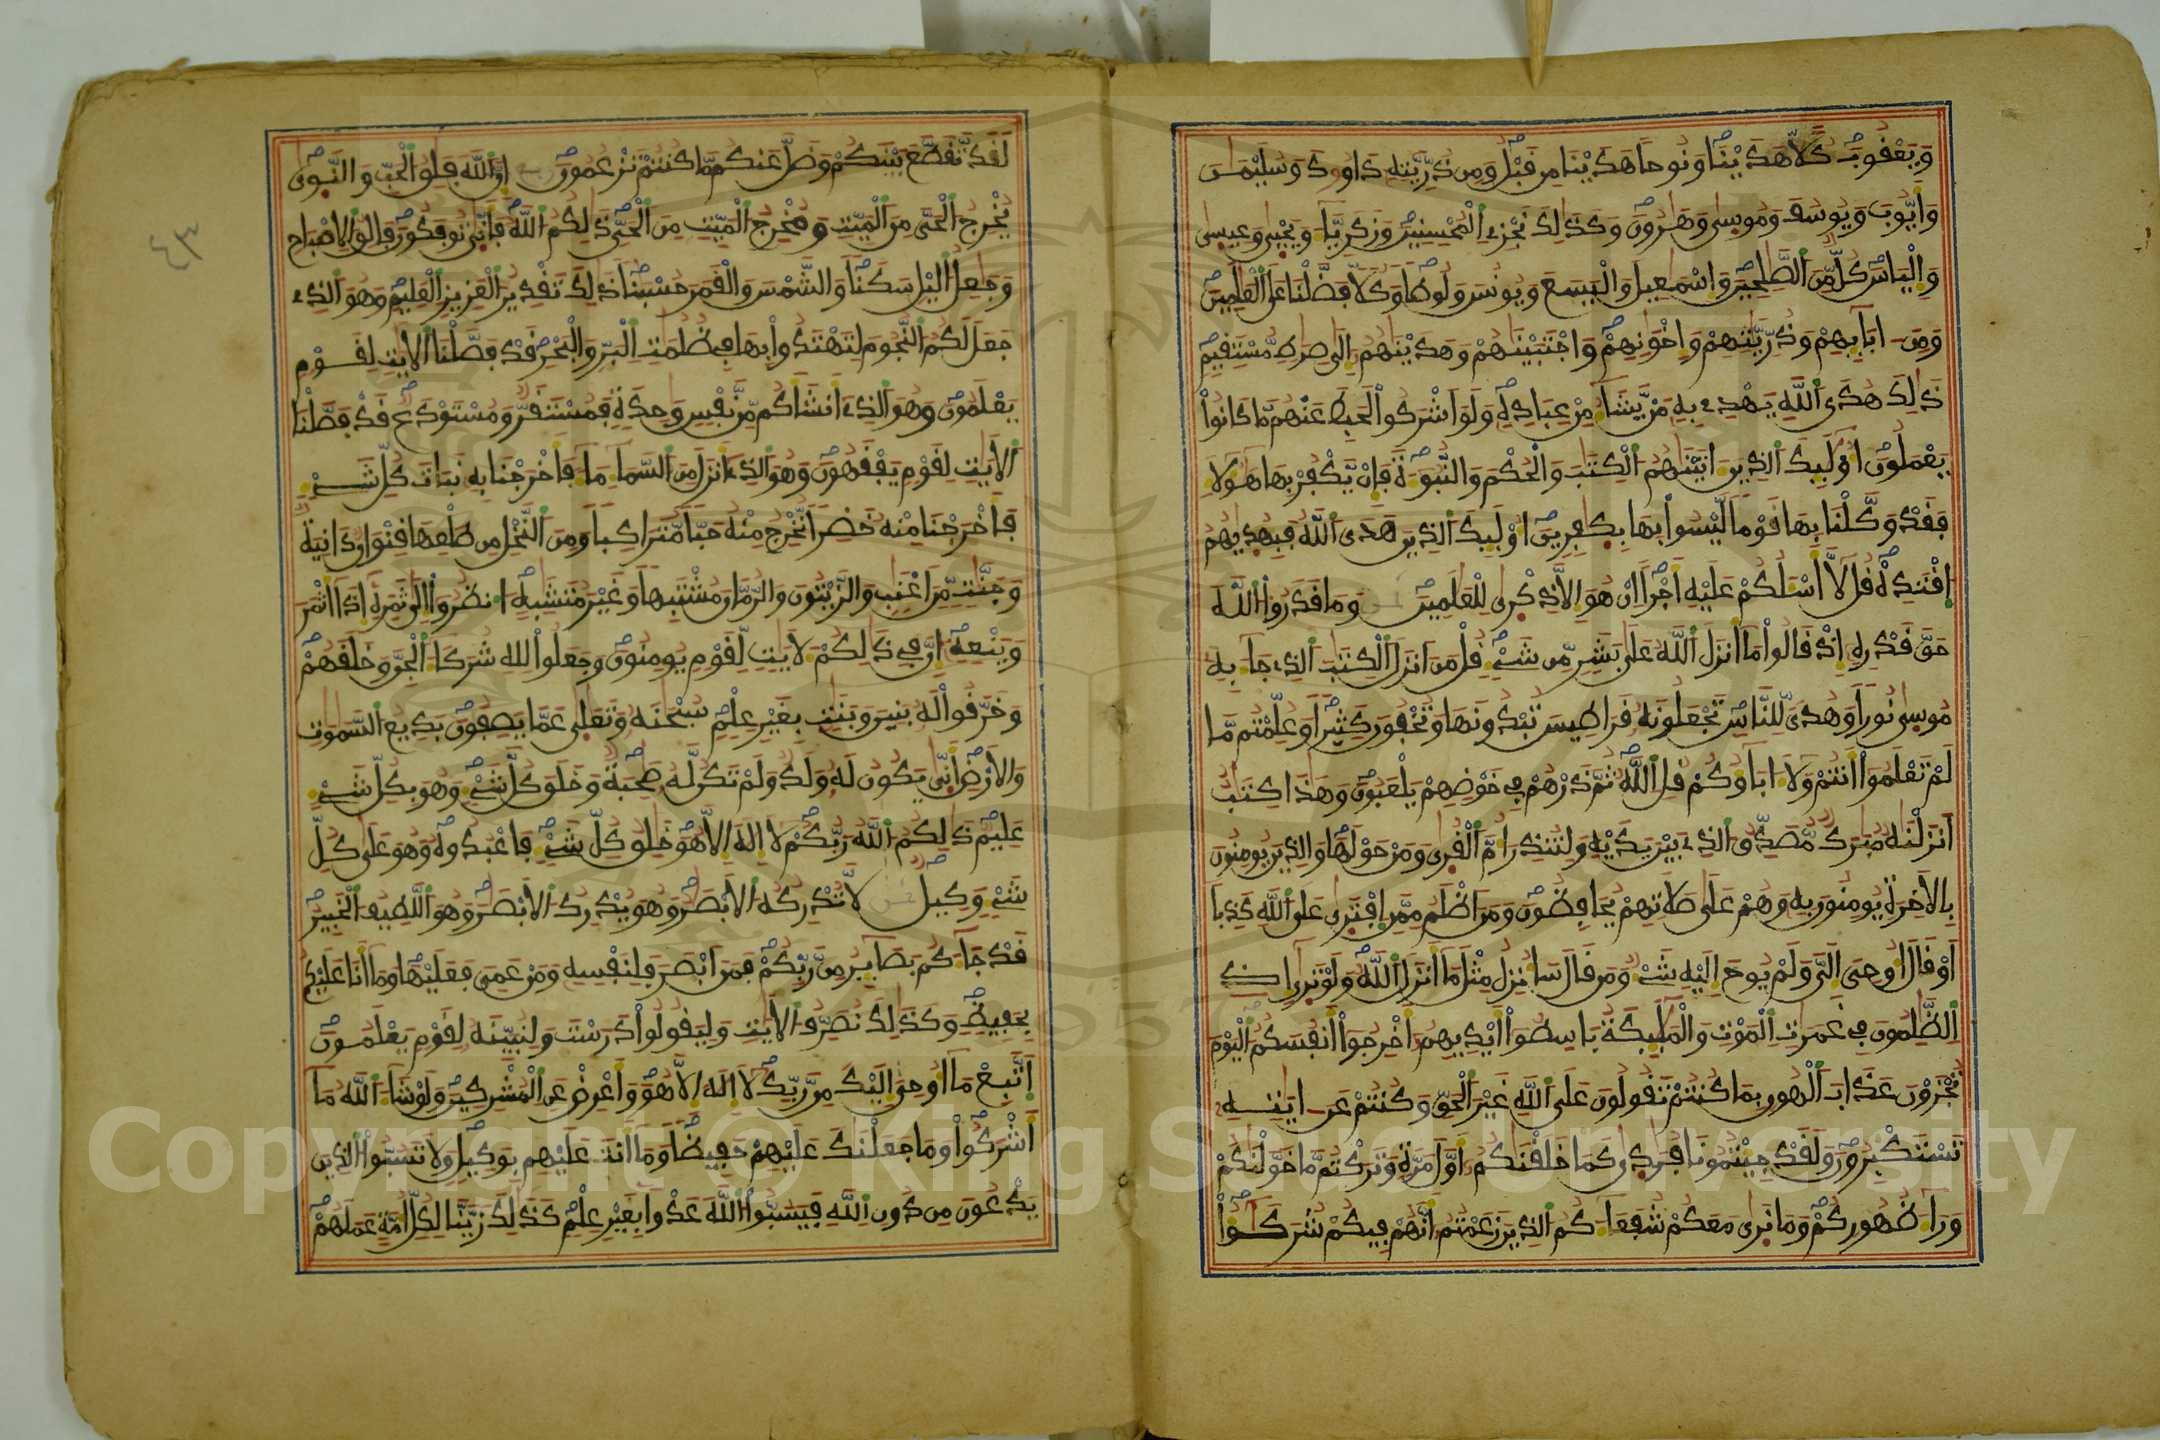 وَيَعْقُوبَ كُلّاً هَدَيْنَا وَنُوحاً هَدَيْنَا مِن قَبْلُ وَمِن ذُرِّيَّتِهِ دَاوُودَ وَسُلَيْمَٰنَ
وَأَيُّوبَ وَيُوسُفَ وَمُوسَىٰ وَهَٰرُونَ وَكَذَٰلِكَ نَجْزِے الْمُحْسِنِينَ وَزَكَرِيَّآءَ وَيَحْيَىٰ وَعِيسَىٰ
وَإِلْيَاسَ كُلٌّ مِّنَ الصَّٰلِحِينَ وَإِسْمَٰعِيلَ وَالْيَسَعَ وَيُونُسَ وَلُوطاً وَكُلّاً فَضَّلْنَا عَلَى الْعَٰلَمِينَ
وَمِنَ ابَآئِهِمْ وَذُرِّيَّٰتِهِمْ وَإِخْوَٰنِهِمْ وَاجْتَبَيْنَٰهُمْ وَهَدَيْنَٰهُمُ إِلَىٰ صِرَٰطٍ مُّسْتَقِيمٍ
ذَٰلِكَ هُدَى اللَّهِ يَهْدِے بِهِ مَنْ يَّشَآءُ مِنْ عِبَادِهِ وَلَوَ اشْرَكُواْ لَحَبِطَ عَنْهُم مَّا كَانُواْ
يَعْمَلُونَ أُوْلَٰٓئِكَ الذِينَ ءَاتَيْنَٰهُمُ الْكِتَٰبَ وَالْحُكْمَ وَالنُّبُوٓءَةَ فَإِنْ يَّكْفُرْ بِهَا هَٰٓؤُلَآءِ
فَقَدْ وَكَّلْنَا بِهَا قَوْماً لَّيْسُواْ بِهَا بِكَٰفِرِينَ أُوْلَٰٓئِكَ الذِينَ هَدَى اللَّهُ فَبِهُدَيٰهُمُ
اقْتَدِهْ قُل لَّآ أَسْـَٔلُكُمْ عَلَيْهِ أَجْراً إِنْ هُوَ إِلَّا ذِكْرَىٰ لِلْعَٰلَمِينَ وَمَا قَدَرُواْ اللَّهَ
حَقَّ قَدْرِهِ إِذْ قَالُواْ مَآ أَنزَلَ اللَّهُ عَلَىٰ بَشَرٍ مِّن شَےْءٍ قُلْ مَنَ انزَلَ الْكِتَٰبَ الذِے جَآءَ بِهِ
مُوسَىٰ نُوراً وَهُدىً لِّلنَّاسِ تَجْعَلُونَهُ قَرَاطِيسَ تُبْدُونَهَا وَتُخْفُونَ كَثِيراً وَعُلِّمْتُم مَّا
لَمْ تَعْلَمُواْ أَنتُمْ وَلَآ ءَابَآؤُكُمْ قُلِ اللَّهُ ثُمَّ ذَرْهُمْ فِے خَوْضِهِمْ يَلْعَبُونَ وَهَٰذَا كِتَٰبٌ
أَنزَلْنَٰهُ مُبَٰرَكٌ مُّصَدِّقُ الذِے بَيْنَ يَدَيْهِ وَلِتُنذِرَ أُمَّ الْقُرَىٰ وَمَنْ حَوْلَهَا وَالذِينَ يُومِنُونَ
بِالَاخِرَةِ يُومِنُونَ بِهِ وَهُمْ عَلَىٰ صَلَاتِهِمْ يُحَافِظُونَ وَمَنَ اظْلَمُ مِمَّنِ افْتَرَىٰ عَلَى اللَّهِ كَذِباً
أَوْ قَالَ أُوحِىَ إِلَىَّ وَلَمْ يُوحَ إِلَيْهِ شَےْءٌ وَمَن قَالَ سَأُنزِلُ مِثْلَ مَآ أَنزَلَ اللَّهُ وَلَوْ تَرَىٰٓ إِذِ
الظَّٰلِمُونَ فِے غَمَرَٰتِ الْمَوْتِ وَالْمَلَٰٓئِكَةُ بَاسِطُوٓاْ أَيْدِيهِمُ أَخْرِجُوٓاْ أَنفُسَكُمُ الْيَوْمَ
تُجْزَوْنَ عَذَابَ الْهُونِ بِمَا كُنتُمْ تَقُولُونَ عَلَى اللَّهِ غَيْرَ الْحَقِّ وَكُنتُمْ عَنَ ايَٰتِهِ
تَسْتَكْبِرُونَ وَلَقَدْ جِئْتُمُونَا فُرَٰدَىٰ كَمَا خَلَقْنَٰكُمُ أَوَّلَ مَرَّةٍ وَتَرَكْتُم مَّا خَوَّلْنَٰكُمْ
وَرَآءَ ظُهُورِكُمْ وَمَا نَرَىٰ مَعَكُمْ شُفَعَآءَكُمُ الذِينَ زَعَمْتُمُ أَنَّهُمْ فِيكُمْ شُرَكَٰٓؤُاْ
٤٣
لَقَد تَّقَطَّعَ بَيْنَكُمْ وَضَلَّ عَنكُم مَّا كُنتُمْ تَزْعُمُونَ إِنَّ اللَّهَ فَٰلِقُ الْحَبِّ وَالنَّوَىٰ
يُخْرِجُ الْحَىَّ مِنَ الْمَيِّتِ وَمُخْرِجُ الْمَيِّتِ مِنَ الْحَىِّ ذَٰلِكُمُ اللَّهُ فَأَنَّىٰ تُوفَكُونَ فَالِقُ الِاصْبَاحِ
وَجَٰعِلُ الَيْلِ سَكَناً وَالشَّمْسَ وَالْقَمَرَ حُسْبَٰناً ذَٰلِكَ تَقْدِيرُ الْعَزِيزِ الْعَلِيمِ وَهُوَ الذِے
جَعَلَ لَكُمُ النُّجُومَ لِتَهْتَدُواْ بِهَا فِے ظُلُمَٰتِ الْبَرِّ وَالْبَحْرِ قَدْ فَصَّلْنَا الَايَٰتِ لِقَوْمٍ
يَعْلَمُونَ وَهُوَ الذِےٓ أَنشَأَكُم مِّن نَّفْسٍ وَٰحِدَةٍ فَمُسْتَقَرٌّ وَمُسْتَوْدَعٌ قَدْ فَصَّلْنَا
الَايَٰتِ لِقَوْمٍ يَفْقَهُونَ وَهُوَ الذِےٓ أَنزَلَ مِنَ السَّمَآءِ مَآءً فَأَخْرَجْنَا بِهِ نَبَاتَ كُلِّ شَےْءٍ
فَأَخْرَجْنَا مِنْهُ خَضِراً نُّخْرِجُ مِنْهُ حَبّاً مُّتَرَاكِباً وَمِنَ النَّخْلِ مِن طَلْعِهَا قِنْوَانٌ دَانِيَةٌ
وَجَنَّٰتٍ مِّنَ اعْنَٰبٍ وَالزَّيْتُونَ وَالرُّمَّانَ مُشْتَبِهاً وَغَيْرَ مُتَشَٰبِهٍ انظُرُوٓاْ إِلَىٰ ثَمَرِهِ إِذَآ أَثْمَرَ
وَيَنْعِهِ إِنَّ فِے ذَٰلِكُمْ لَأَيَٰتٍ لِّقَوْمٍ يُومِنُونَ وَجَعَلُواْ لِلهِ شُرَكَآءَ الْجِنَّ وَخَلَقَهُمْ
وَخَرَّقُواْ لَهُ بَنِينَ وَبَنَٰتٍ بِغَيْرِ عِلْمٍ سُبْحَٰنَهُ وَتَعَٰلَىٰ عَمَّا يَصِفُونَ بَدِيعُ السَّمَٰوَٰتِ
وَالَارْضِ أَنَّىٰ يَكُونُ لَهُ وَلَدٌ وَلَمْ تَكُن لَّهُ صَٰحِبَةٌ وَخَلَقَ كُلَّ شَےْءٍ وَهُوَ بِكُلِّ شَےْءٍ
عَلِيمٌ ذَٰلِكُمُ اللَّهُ رَبُّكُمْ لَآ إِلَٰهَ إِلَّا هُوَ خَٰلِقُ كُلِّ شَےْءٍ فَاعْبُدُوهُ وَهُوَ عَلَىٰ كُلِّ
شَےْءٍ وَكِيلٌ لَّا تُدْرِكُهُ الَابْصَٰرُ وَهُوَ يُدْرِكُ الَابْصَٰرَ وَهُوَ اللَّطِيفُ الْخَبِيرُ
قَدْ جَآءَكُم بَصَآئِرُ مِن رَّبِّكُمْ فَمَنَ ابْصَرَ فَلِنَفْسِهِ وَمَنْ عَمِىَ فَعَلَيْهَا وَمَآ أَنَا عَلَيْكُم
بِحَفِيظٍ وَكَذَٰلِكَ نُصَرِّفُ الَايَٰتِ وَلِيَقُولُواْ دَرَسْتَ وَلِنُبَيِّنَهُ لِقَوْمٍ يَعْلَمُونَ
اَتَّبِعْ مَآ أُوحِىَ إِلَيْكَ مِن رَّبِّكَ لَآ إِلَٰهَ إِلَّا هُوَ وَأَعْرِضْ عَنِ الْمُشْرِكِينَ وَلَوْ شَآءَ اللَّهُ مَآ
أَشْرَكُواْ وَمَا جَعَلْنَٰكَ عَلَيْهِمْ حَفِيظاً وَمَآ أَنتَ عَلَيْهِم بِوَكِيلٍ وَلَا تَسُبُّواْ الذِينَ
يَدْعُونَ مِن دُونِ اللَّهِ فَيَسُبُّواْ اللَّهَ عَدْواً بِغَيْرِ عِلْمٍ كَذَٰلِكَ زَيَّنَّا لِكُلِّ أُمَّةٍ عَمَلَهُمْ
Copyright © King Saud University